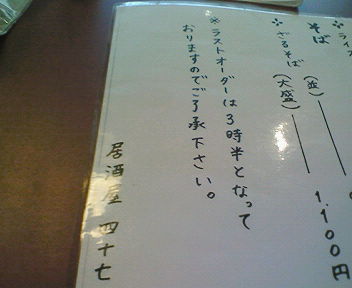 ライス
そば (並) ――
* ざるそば (大盛) ―― 1,100円
※ラストオーダーは3時半となって
おりますのでご了承下さい。
居酒屋 四十七